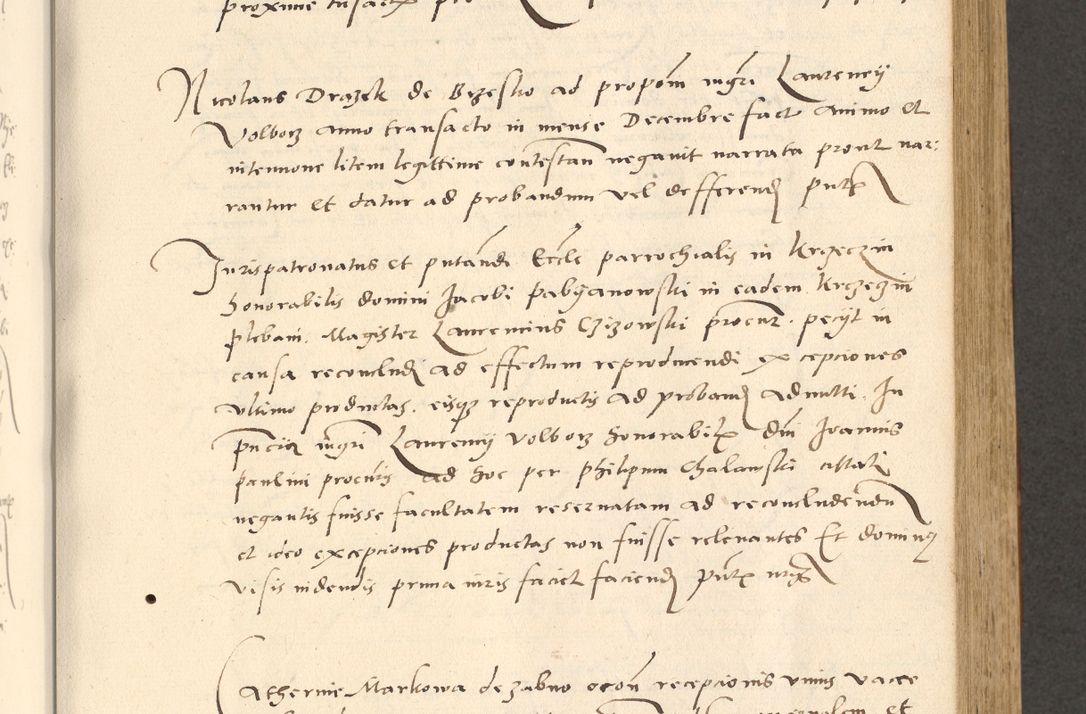 proxime
Nicolaus Drazek de Brzesko ad propom mgri Laurency
Volborz anno transacto in mense Decembre fact animo et
intencione litem legittime contestan negavit narrata prout nar:
rantur et datur ad probandum vel defferend putx
Jurispatronatus et putandi Eccle parrochialis in Krzeczin
honorabilis domini Jacobi Pabyanowski in eadem Krzeczin
plebani. Magister Laurencius Czizowski procur. pecyt in
causa reconcludi ad effectum reproducendi excepciones
ultimo productas. eisque reproductis ad proband admitti. In
pncia mgri Laurency Volborz honorabilx dni Joannis
paulini procuris ad hoc per Philipum Chalawski cittati
negantis fuisse facultatem reservatam ad reconcludendum
et ideo excepciones productas non fuisse relevantes Et dominus
visis videndis prima iuris faciet faciend putx mgr
Catherine Markowa de zabno ocon recepcionis unius vacce
et